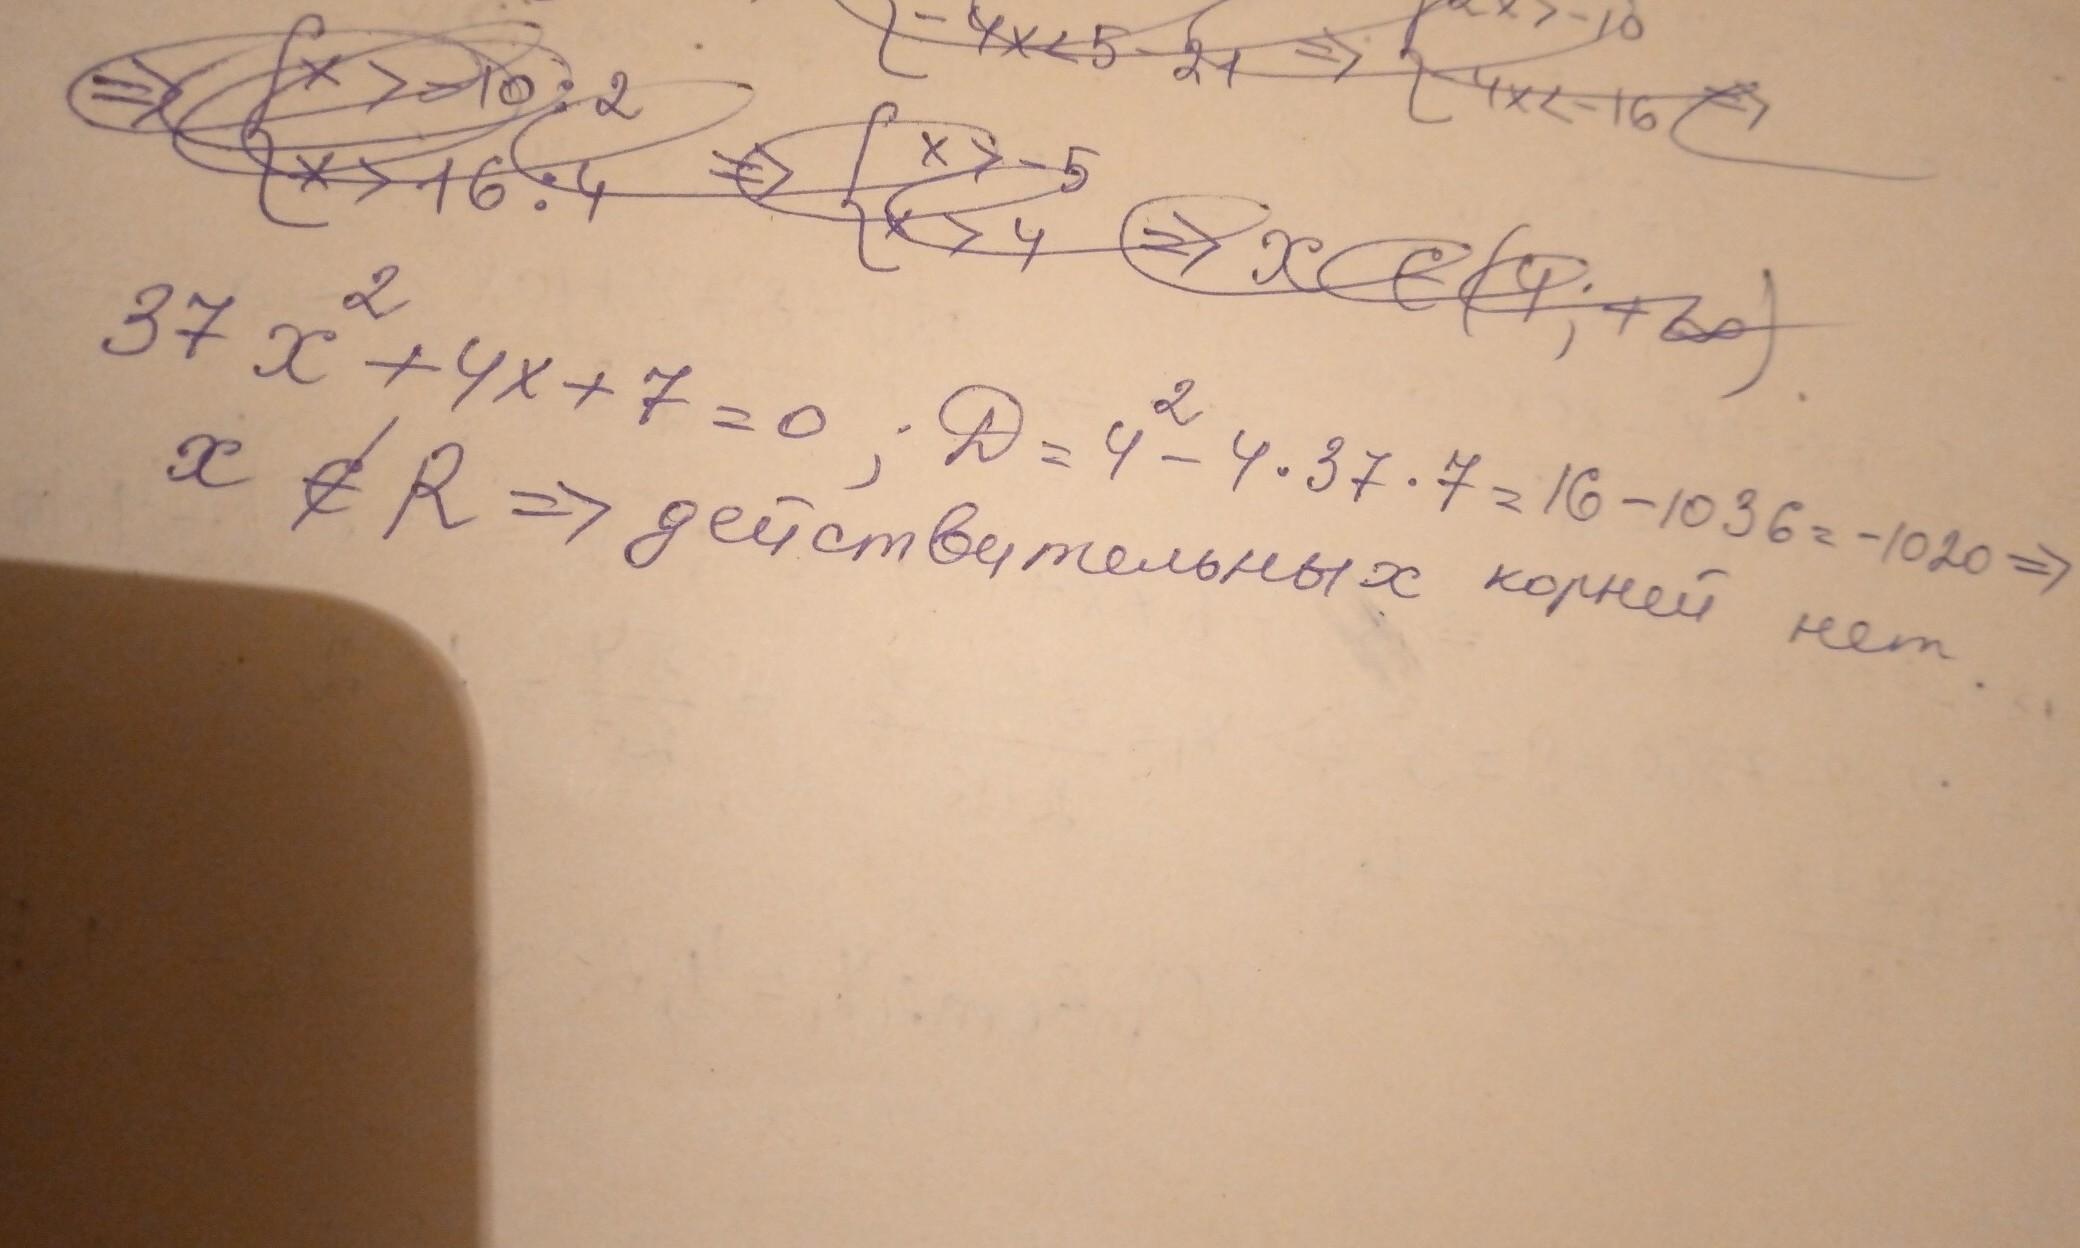 {-4x<5-21 => {2x>-10
-4x<-16 =>
=> {x>-10:2
x>16:4 => {x>-5
x>4 => x ∈ (4; +∞).
37x²+4x+7=0; D=4²-4·37·7=16-1036=-1020=>
x ∉ R => действительных корней нет.